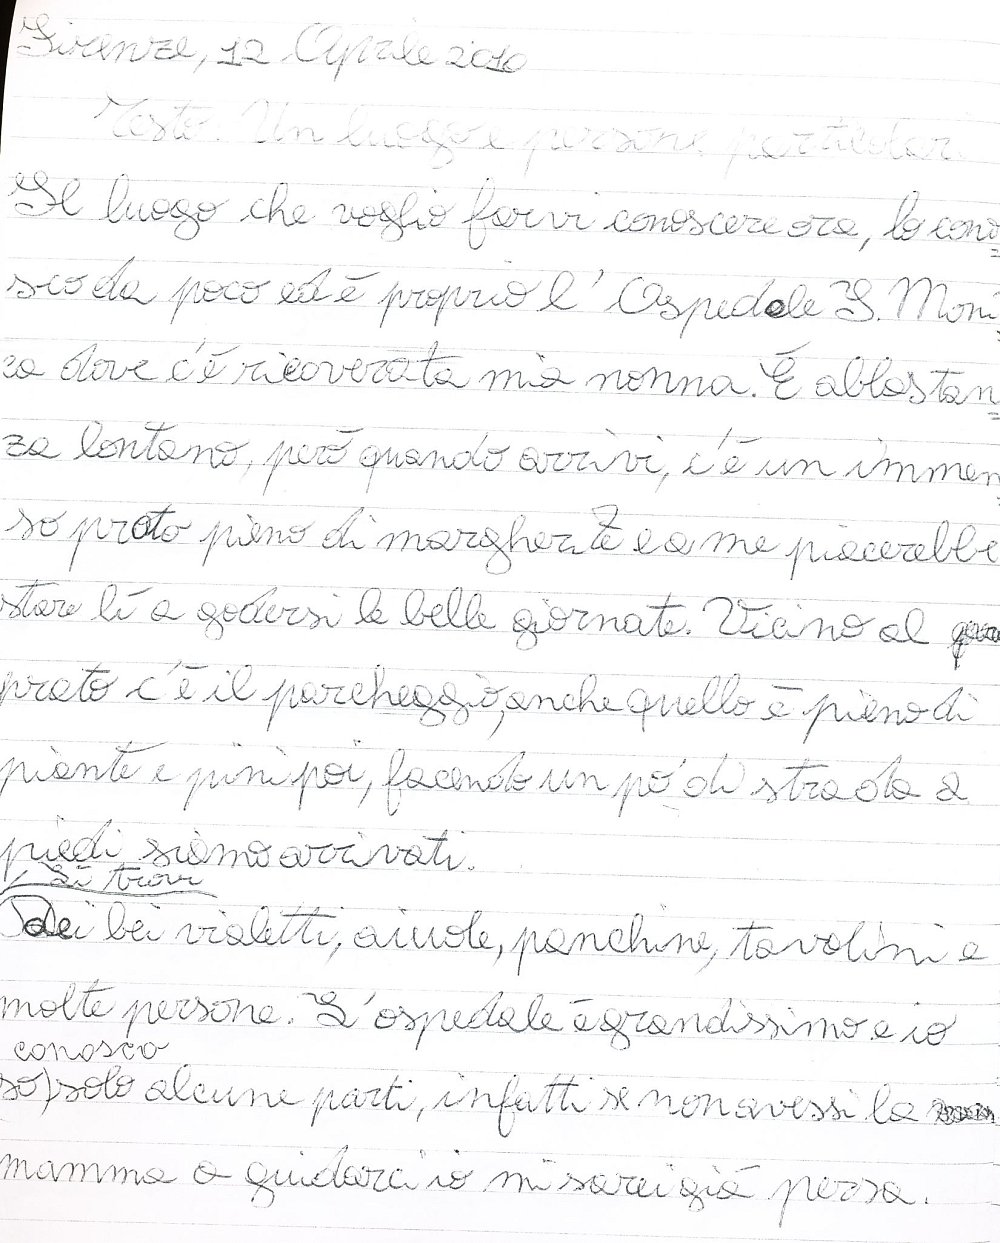 Firenze, 12 Aprile 2010
Testo: Un luogo e persone particolari.
Il luogo che voglio farvi conoscere ora, lo cono
sco da poco ed è proprio l'Ospedale I.Moni
ca dove c'è ricoverata mia nonna. È abbastan
za lontano, però quando arrivi, c'è un immen
so prato pieno di margherite e a me piacerebbe
stare lì a godersi le belle giornate. Vicino al
prato c'è il parcheggio, anche quello è pieno di
piante e pini poi, facendo un po' di strada a
piedi siamo arrivati.
Si trovi
dei bei vialetti, aiuole, panchine, tavolini e
molte persone. L'ospedale è grandissimo e io
conosco
so) solo alcune parti, infatti se non avessi la
mamma a guidarci io mi sarei già persa.